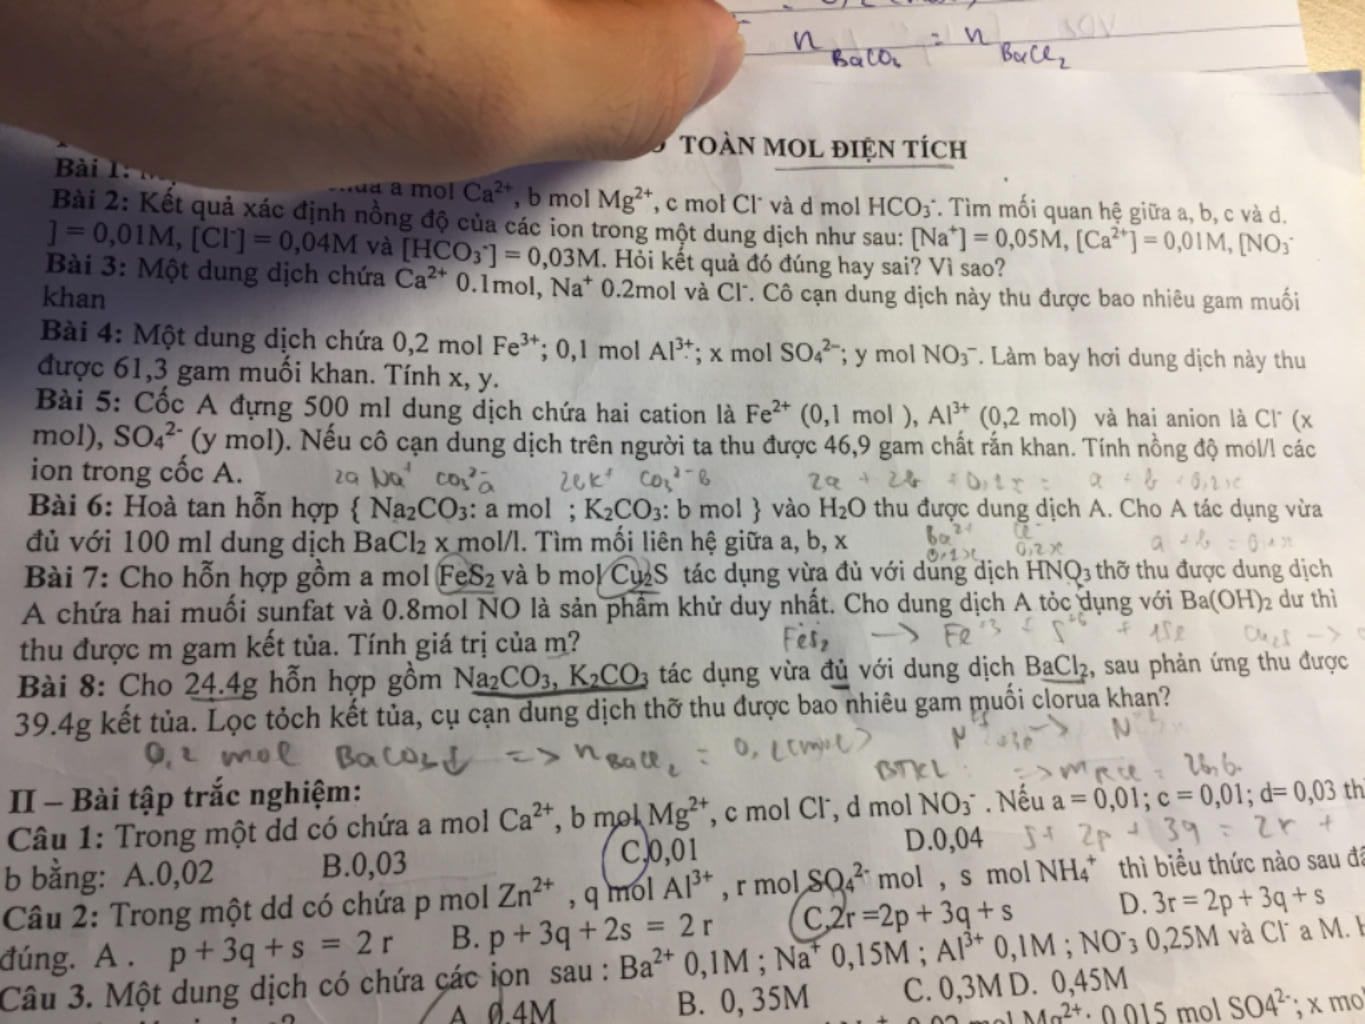 n BaCO₃ = n BaCl₂
TOÀN MOL ĐIỆN TÍCH
Bài 1: a mol Ca²⁺, b mol Mg²⁺, c mol Cl⁻ và d mol HCO₃⁻. Tìm mối quan hệ giữa a, b, c và d.
Bài 2: Kết quả xác định nồng độ của các ion trong một dung dịch như sau: [Na⁺] = 0,05M, [Ca²⁺] = 0,01M, [NO₃⁻
] = 0,01M, [Cl⁻] = 0,04M và [HCO₃⁻] = 0,03M. Hỏi kết quả đó đúng hay sai? Vì sao?
Bài 3: Một dung dịch chứa Ca²⁺ 0.1mol, Na⁺ 0.2mol và Cl⁻. Cô cạn dung dịch này thu được bao nhiêu gam muối
khan
Bài 4: Một dung dịch chứa 0,2 mol Fe³⁺; 0,1 mol Al³⁺; x mol SO₄²⁻; y mol NO₃⁻. Làm bay hơi dung dịch này thu
được 61,3 gam muối khan. Tính x, y.
Bài 5: Cốc A đựng 500 ml dung dịch chứa hai cation là Fe²⁺ (0,1 mol ), Al³⁺ (0,2 mol) và hai anion là Cl⁻ (x
mol), SO₄²⁻ (y mol). Nếu cô cạn dung dịch trên người ta thu được 46,9 gam chất rắn khan. Tính nồng độ mol/l các
ion trong cốc A.
2a Na⁺ CO₃²⁻ a 2b K⁺ CO₃²⁻ b 2a + 2b + 0,2x = a + b + 0,2x
Bài 6: Hoà tan hỗn hợp { Na₂CO₃: a mol ; K₂CO₃: b mol } vào H₂O thu được dung dịch A. Cho A tác dụng vừa
đủ với 100 ml dung dịch BaCl₂ x mol/l. Tìm mối liên hệ giữa a, b, x
Ba²⁺ 0,1x Cl⁻ 0,2x a + b = 0,1x
Bài 7: Cho hỗn hợp gồm a mol FeS₂ và b mol Cu₂S tác dụng vừa đủ với dung dịch HNO₃ thỡ thu được dung dịch
A chứa hai muối sunfat và 0.8mol NO là sản phẩm khử duy nhất. Cho dung dịch A tỏc dụng với Ba(OH)₂ dư thì
thu được m gam kết tủa. Tính giá trị của m?
FeS₂ → Fe⁺³ + S⁺⁶ + 15e Cu₂S →
Bài 8: Cho 24.4g hỗn hợp gồm Na₂CO₃, K₂CO₃ tác dụng vừa đủ với dung dịch BaCl₂, sau phản ứng thu được
39.4g kết tủa. Lọc tỏch kết tủa, cụ cạn dung dịch thỡ thu được bao nhiêu gam muối clorua khan?
N⁺⁵ + 3e → N
0,2 mol BaCO₃↓ => n BaCl₂ = 0,2 (mol)
BTKL: => m = 26,6
II – Bài tập trắc nghiệm:
Câu 1: Trong một dd có chứa a mol Ca²⁺, b mol Mg²⁺, c mol Cl⁻, d mol NO₃⁻ . Nếu a = 0,01; c = 0,01; d= 0,03 th
b bằng: A.0,02 B.0,03 C.0,01 D.0,04
s + 2p + 3q = 2r +
Câu 2: Trong một dd có chứa p mol Zn²⁺ , q mol Al³⁺ , r mol SO₄²⁻ mol , s mol NH₄⁺ thì biểu thức nào sau đâ
đúng. A . p + 3q + s = 2 r B. p + 3q + 2s = 2 r C.2r =2p + 3q + s D. 3r = 2p + 3q + s
Câu 3. Một dung dịch có chứa các ion sau : Ba²⁺ 0,1M ; Na⁺ 0,15M ; Al³⁺ 0,1M ; NO⁻₃ 0,25M và Cl⁻ a M.
A 0,4M B. 0, 35M C. 0,3M D. 0,45M
mol Mg²⁺; 0,015 mol SO4²⁻; x mo